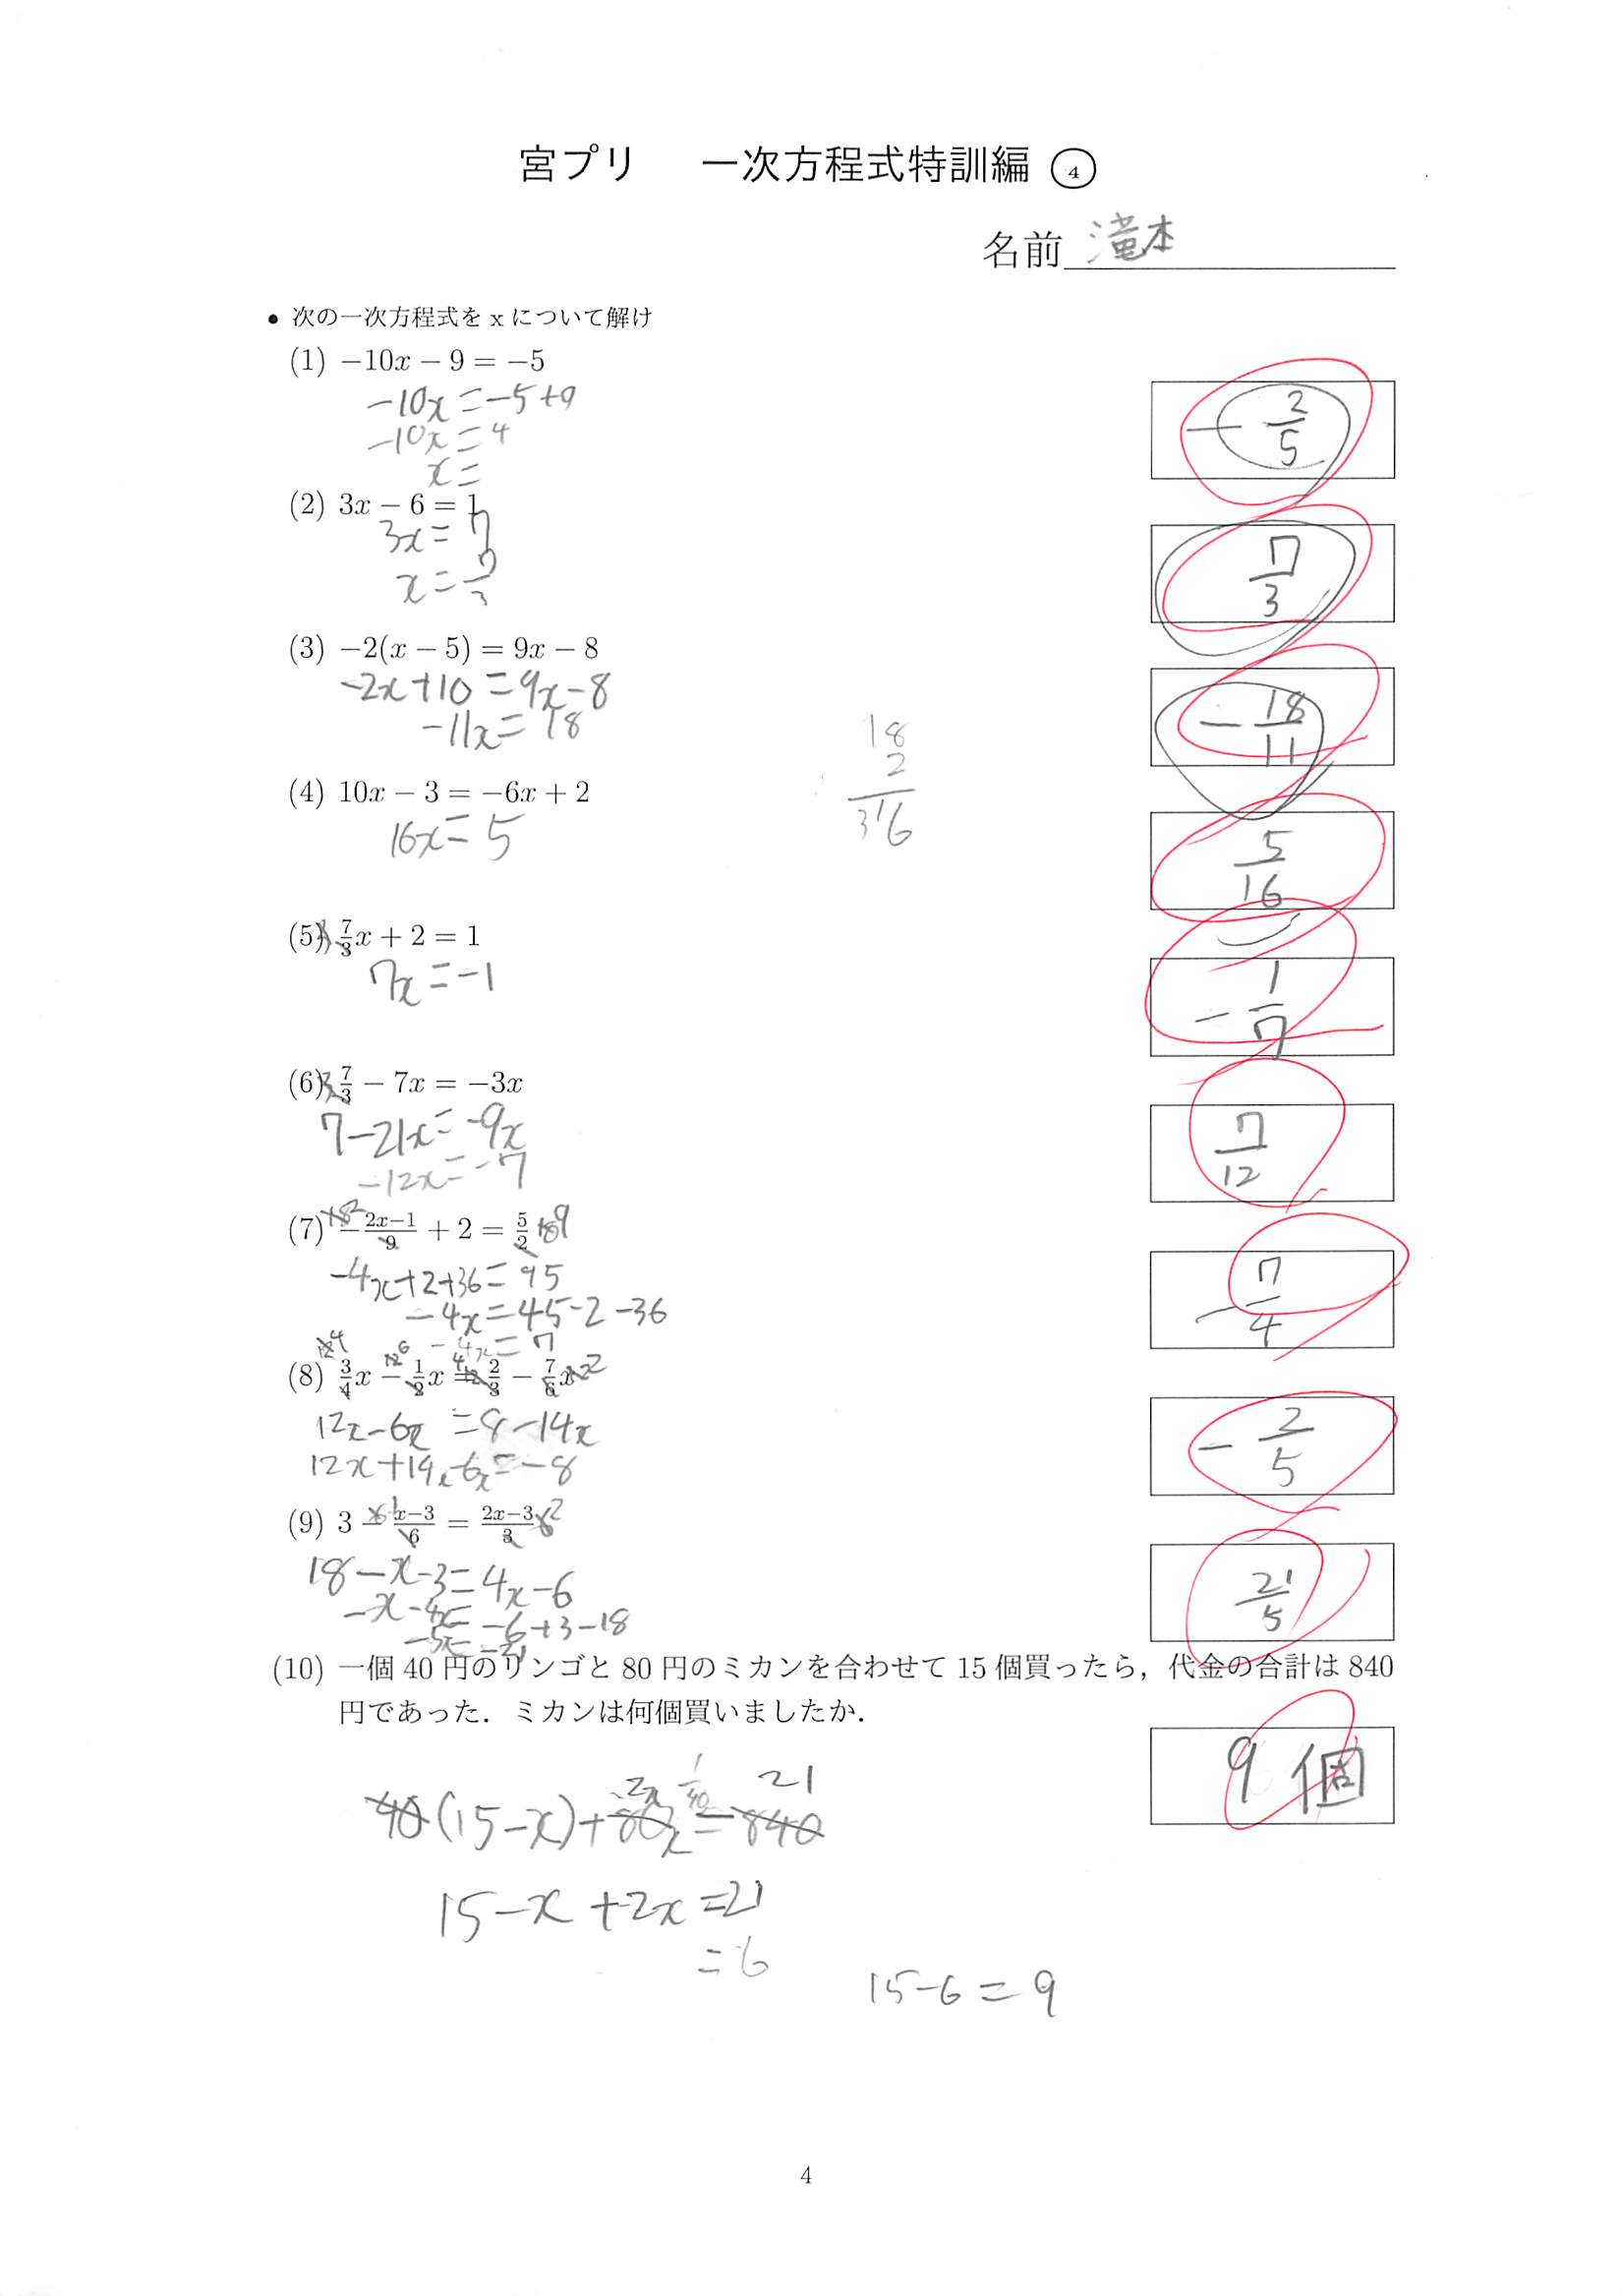 宮プリ　一次方程式特訓編 ④
名前 滝本
● 次の一次方程式を x について解け
(1) −10x − 9 = −5
−10x = −5+9
−10x = 4
x =
−2/5
(2) 3x − 6 = 1
3x = 7
x = 7/3
7/3
(3) −2(x − 5) = 9x − 8
−2x+10 = 9x−8
−11x = 18
−18/11
18
2
316
(4) 10x − 3 = −6x + 2
16x = 5
5/16
(5) 7/3 x + 2 = 1
7x = −1
−1/7
(6) 7/3 − 7x = −3x
7−21x = −9x
−12x = −7
7/12
(7) − (2x−1)/9 + 2 = 5/2
−4x+2+36 = 45
−4x = 45−2−36
−4x = 7
−7/4
(8) 3/4 x − 1/2 x = 2/3 − 7/6 x
12x−6x = 8−14x
12x+14x−6x = −8
−2/5
(9) 3 − (x−3)/6 = (2x−3)/3
18−x−3 = 4x−6
−x−4x = −6+3−18
−5x = −21
21/5
(10) 一個 40 円のリンゴと 80 円のミカンを合わせて 15 個買ったら，代金の合計は 840
円であった．ミカンは何個買いましたか．
9 個
2x 1/40 21
40(15−x)+80x = 840
15−x+2x = 21
= 6
15−6 = 9
4